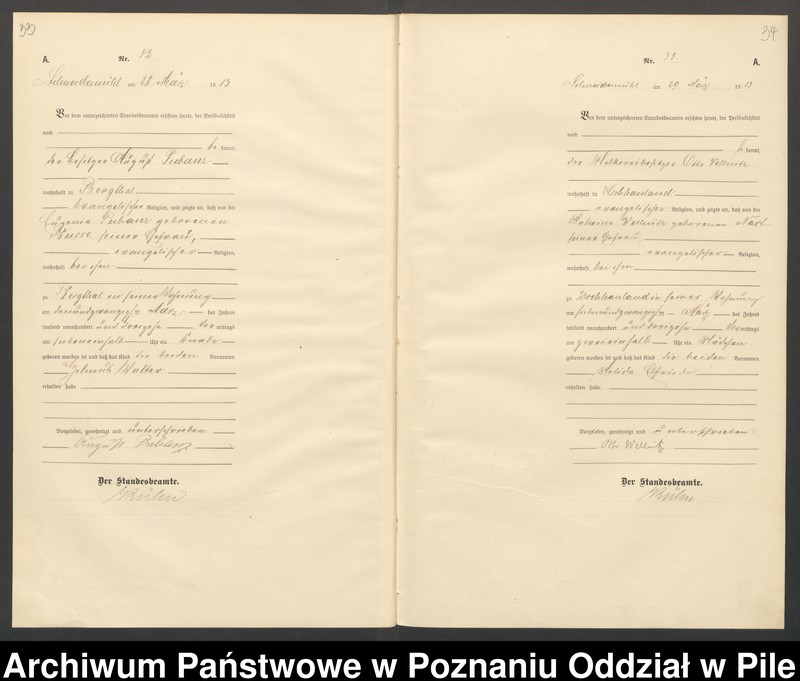 33
A.
Nr. 32
Schneidemühl am 28 März 1913
Vor dem unterzeichneten Standesbeamten erschien heute, der Persönlichkeit
nach
be kannt,
der Besitzer August
wohnhaft in Bergthal
evangelischer Religion, und zeigte an, daß von der
Eugenia geborenen
seiner Ehefrau,
evangelischer Religion,
wohnhaft bei ihm
zu Bergthal in seiner Wohnung
am März des Jahres
tausend neunhundert und dreizehn Vor mittags
um siebeneinhalb Uhr ein Knabe
geboren worden sei und daß das Kind die beiden Vornamen
Helmut Walter
erhalten habe.
Vorgelesen, genehmigt und unterschrieben
August
Der Standesbeamte.
34
Nr. 33.
A.
Schneidemühl am 29 März 1913
Vor dem unterzeichneten Standesbeamten erschien heute, der Persönlichkeit
nach
be kannt,
der Molkereibesitzer Otto Vellnitz
wohnhaft in
evangelischer Religion, und zeigte an, daß von der
Vellnitz geborenen
seiner Ehefrau,
evangelischer Religion,
wohnhaft bei ihm
zu in seiner Wohnung
am siebenundzwanzigsten März des Jahres
tausend neunhundert und dreizehn Vor mittags
um zweieinhalb Uhr ein Mädchen
geboren worden sei und daß das Kind die beiden Vornamen
Elfriede
erhalten habe.
Vorgelesen, genehmigt und unterschrieben
Otto Vellnitz
Der Standesbeamte.
Archiwum Państwowe w Poznaniu Oddział w Pile